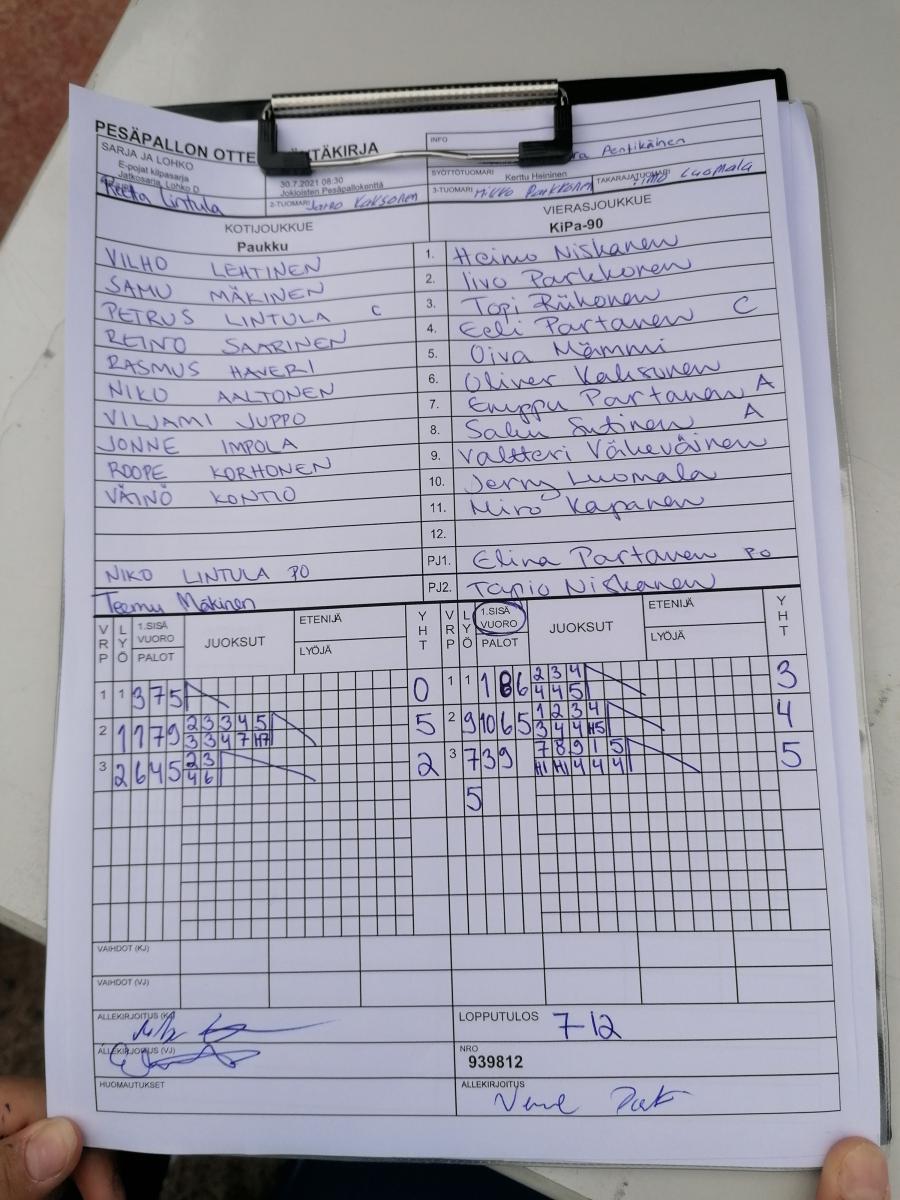 PESÄPALLON OTTE TÄKIRJA
SARJA JA LOHKO
E-pojat kilpasarja
Jatkosarja, Lohko D
Reeta Lintula
30.7.2021 08:30
Jokioisten Pesäpallokenttä
2-TUOMARI Jarno Kaksonen
INFO
ra Pentikäinen
SYÖTTÖTUOMARI Kerttu Heininen
3-TUOMARI Mikko Parkkonen TAKARAJATUOMARI Timo Luomala
KOTIJOUKKUE
Paukku
VIERASJOUKKUE
KiPa-90
VILHO LEHTINEN 1. Heimo Niskanen
SAMU MÄKINEN 2. Iivo Parkkonen
PETRUS LINTULA C 3. Topi Riikonen
REINO SAARINEN 4. Eeli Partanen C
RASMUS HAVERI 5. Oiva Mämmi
NIKO AALTONEN 6. Oliver Kaksonen
VILJAMI JUPPO 7. Eemppu Partanen A
JONNE IMPOLA 8. Saku Sutinen A
ROOPE KORHONEN 9. Valtteri Väkeväinen
VÄINÖ KONTIO 10. Jerry Luomala
11. Miro Kapanen
12.
NIKO LINTULA PO PJ1. Elina Partanen PO
Teemu Mäkinen PJ2. Tapio Niskanen
VRP LYÖ 1.SISÄ VUORO PALOT JUOKSUT ETENIJÄ LYÖJÄ YHT VRP LYÖ 1.SISÄ VUORO PALOT JUOKSUT ETENIJÄ LYÖJÄ YHT
1 1 3 7 5 0 1 1 1 8 6 2 3 4 3
4 4 5
2 1 1 7 9 2 3 3 4 5 5 2 9 10 6 5 1 2 3 4 4
3 3 4 7 H7 3 4 4 H5
3 2 6 4 5 2 3 2 3 7 3 9 7 8 9 1 5 5
4 6 H1 H1 4 4 4
5
VAIHDOT (KJ)
VAIHDOT (VJ)
ALLEKIRJOITUS (KJ)
LOPPUTULOS 7-12
ALLEKIRJOITUS (VJ)
NRO
939812
HUOMAUTUKSET
ALLEKIRJOITUS